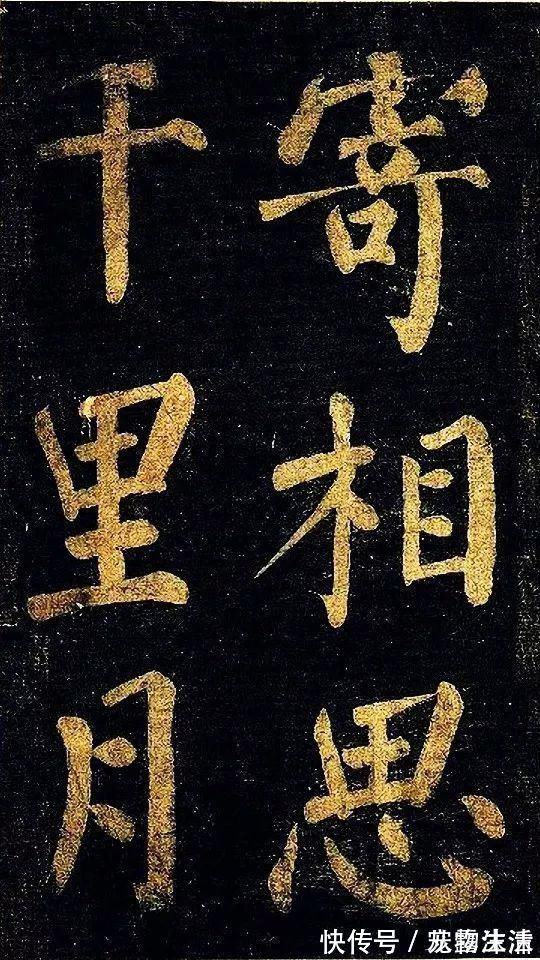 寄相思
千里月
快传号／